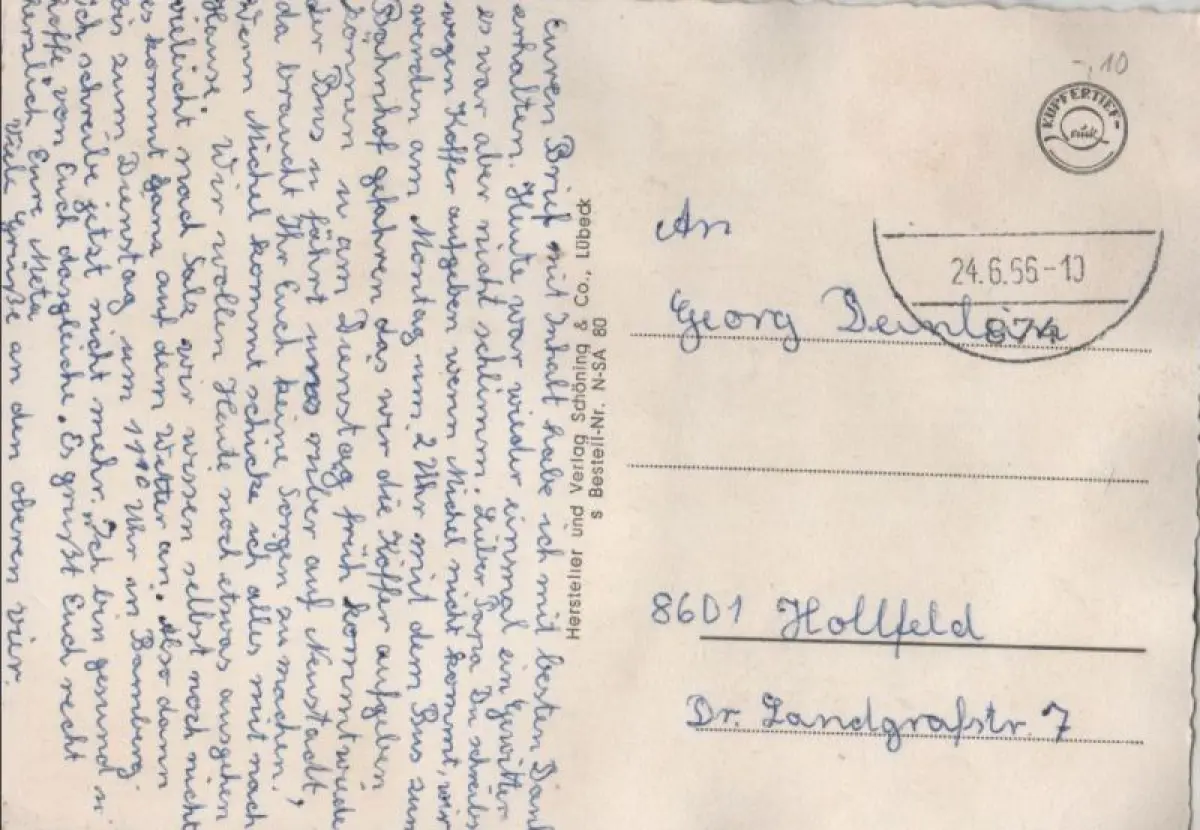 Euren Brief mit Inhalt habe ich mit besten Dank
erhalten. Heute war wieder einmal ein Gewitter
es war aber nicht schlimm. Lieber Papa Du schreibs
wegen Koffer aufgeben wenn Michel nicht kommt, wir
werden am Montag um 2 Uhr mit dem Bus zum
Bahnhof gefahren das wir die Koffer aufgeben
können u am Dienstag früh kommt wieder
der Bus u fährt uns rüber auf Neustadt,
da braucht Ihr Euch keine Sorgen zu machen.
Wenn Michel kommt schicke ich alles mit nach
Hause. Wir wollen Heute noch etwas ausgehen
vieleicht nach Salz wir wissen selbst noch nicht
es kommt ganz auf dem Wetter an. Also dann
bis zum Dienstag um Uhr in Bamberg.
ich schreibe jetzt nicht mehr. Ich bin gesund u
hoffe von Euch dasgleiche. Es grüßt Euch recht
herzlich Eure Meta
Viele Grüße an den oberen vier.
Hersteller und Verlag Schöning & Co., Lübeck
s Bestell-Nr. N-SA 80
-,10
KUPFERTIEF-
24.6.66-10
874
An
Georg
8601 Hollfeld
Dr. Landgrafstr. 7